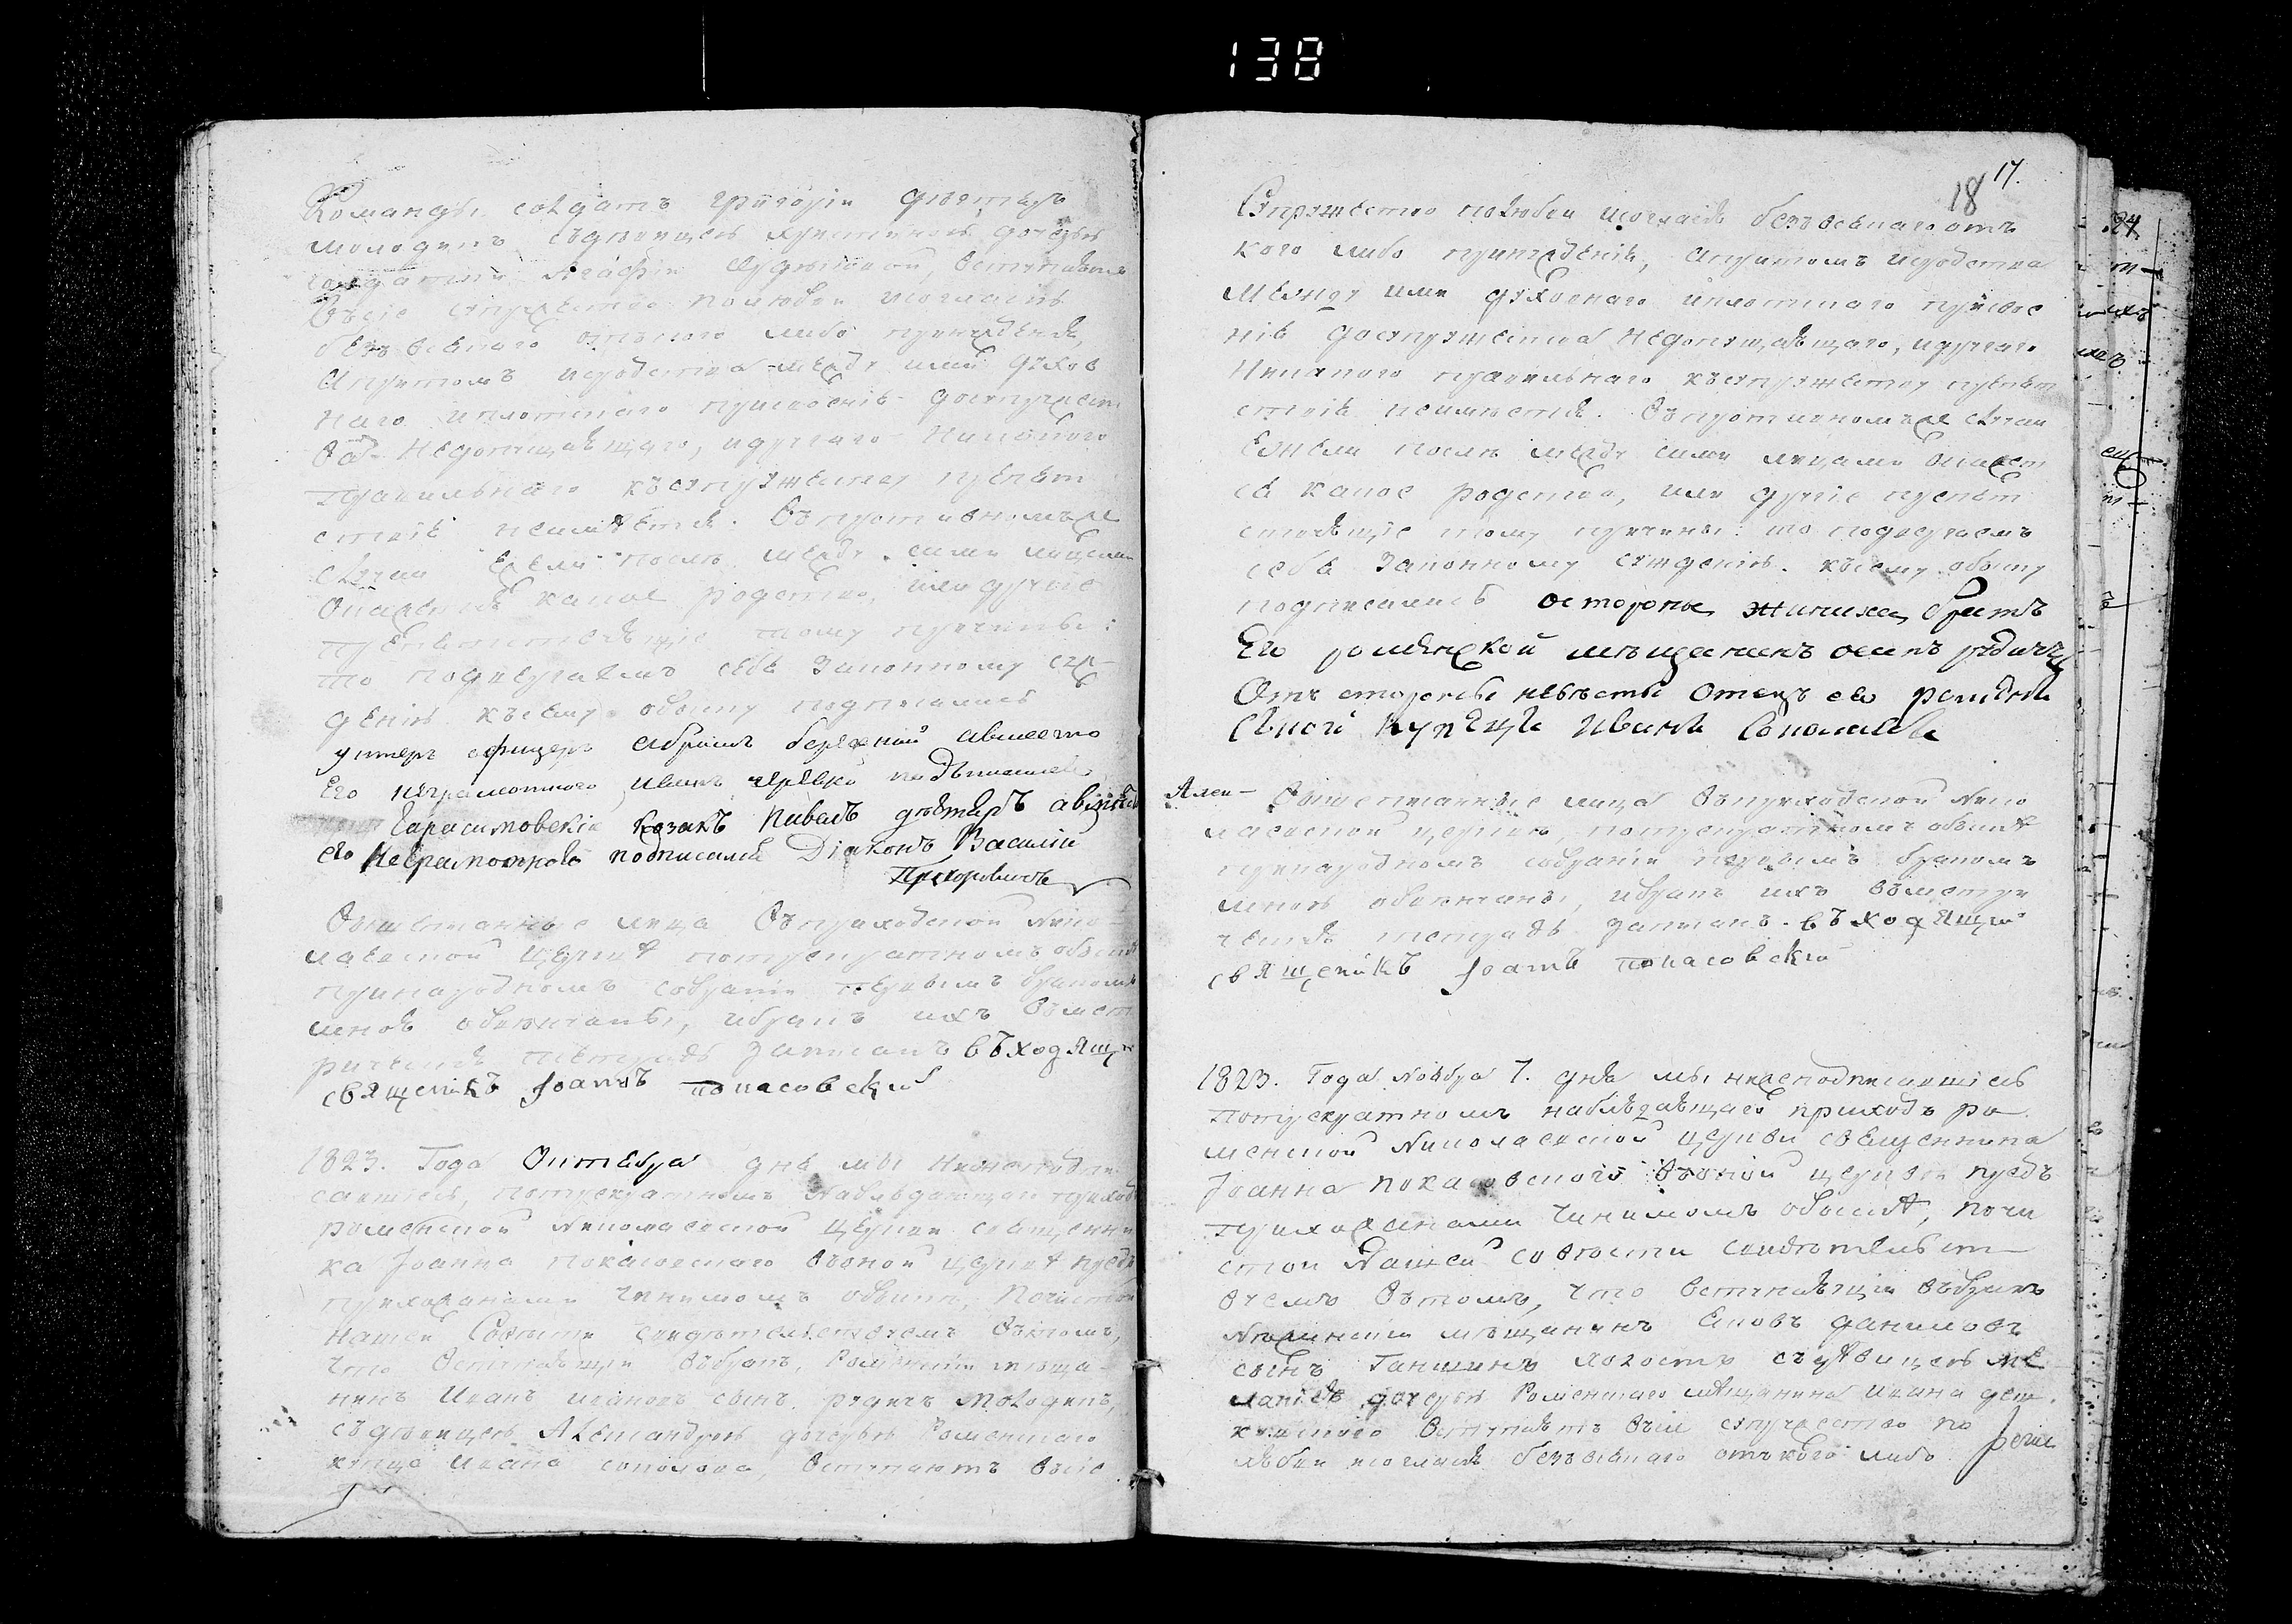 138
Команды солдатъ григорій дѣгтяръ
молодецъ съдѣвицею дочерью
Агафіи вступаютъ
Въсіе супружество полюбви исогласію
безъ всякаго откого либо принужденія,
апритомъ исродства между ими духов
наго иплотского присвоенія досупружест
ва недопущающаго, идругаго никакого
правильнаго ксупружеству препят
ствія неимѣется. Въпротивномъже
случаи ежели послѣ между сими лицами
окажется какое родство, или другіе
препятствующіе тому причины:
то подвергаемъ себя законному суж
денію. къ сему обыску подписались
унтеръ офицеръ абрамъ бережной авместо
Его неграмотного иванъ подписался
Герасимовскій козакъ Павелъ дѣгтяръ авместо
его Неграмотного подписался Діаконъ Василій
Прохоровичъ
Вышеписанные лица въприходской Нико
лаевской церквѣ потрекратномъ обыскѣ
принародномъ собраніи первымъ бракомъ
мною обвенчаны, ибракъ ихъ въмет
рическую тетрадь записанъ въходящ
священикъ Іоаннъ покасовский
1823. Года Октября дня мы нижеподпи
савшіесь, потрекратномъ наблюдающаго приходъ
роменской Николаевской церкви священни
ка Іоанна покасовскаго въоной церквѣ предъ
прихожанами чинимомъ обыски, почистой
нашей Совѣсти свидѣтельствуемъ вътомъ,
что вступающіи въбракъ, Роменскій меща
нинъ Иванъ ивановъ сынъ рѣдичъ молодецъ,
съдѣвицею Александрою дочерью Роменскаго
купца Ивана соколова, вступаютъ въсіе
18 17.
Супружество полюбви исогласію безъ всякаго отъ
кого либо принужденія, апритомъ исродства
между ими духовнаго иплотскаго присвое
нія досупружества недопущающаго, идругаго
Никакого правильнаго късупружеству препят
ствія неимѣется. Въпротивномъже случаи
Ежели послѣ между сими лицами окажет
ся какое родство, или другіе препят
ствующіе тому причины: то подвергаемъ
себя законному сужденію. късему обыску
подписались осторены жениха братъ
Его роменской мещанинъ осипъ рѣдичъ
Отъ стороны невѣсты отецъ ее роменской
купецъ Иванъ Соколовъ
Вышеписанные лица въприходской Нико
лаевской церквѣ, потрекратномъ обыскѣ
принародномъ собраніи первымъ бракомъ
мною обвенчаны, ибракъ ихъ въметри
ческую тетрадь записанъ. въходящи
священикъ Іоаннъ покасовский
1823. Года Ноября 7. дня мы нижеподписавшіесь
потрекратномъ наблюдающаго приходъ ро
менской Николаевской церкви священника
Іоанна покасовского въоной церкви предъ
прихожанами чинимомъ обыскѣ, почи
стой Нашей совѣсти свидѣтельст
вуемъ вътомъ, что вступающіи въбракъ
Нѣжинскій мещанинъ Яковъ даниловъ
сынъ Ганшинъ холостъ съдѣвицею Ме
ланіею дочерью Роменского мѣщанина ивана
вступаютъ въсіе супружество по
любви исогласію безъвсякаго откого либо